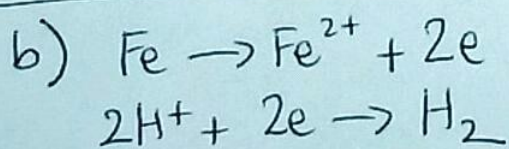 b) Fe → Fe²⁺ + 2e
2H⁺ + 2e → H₂